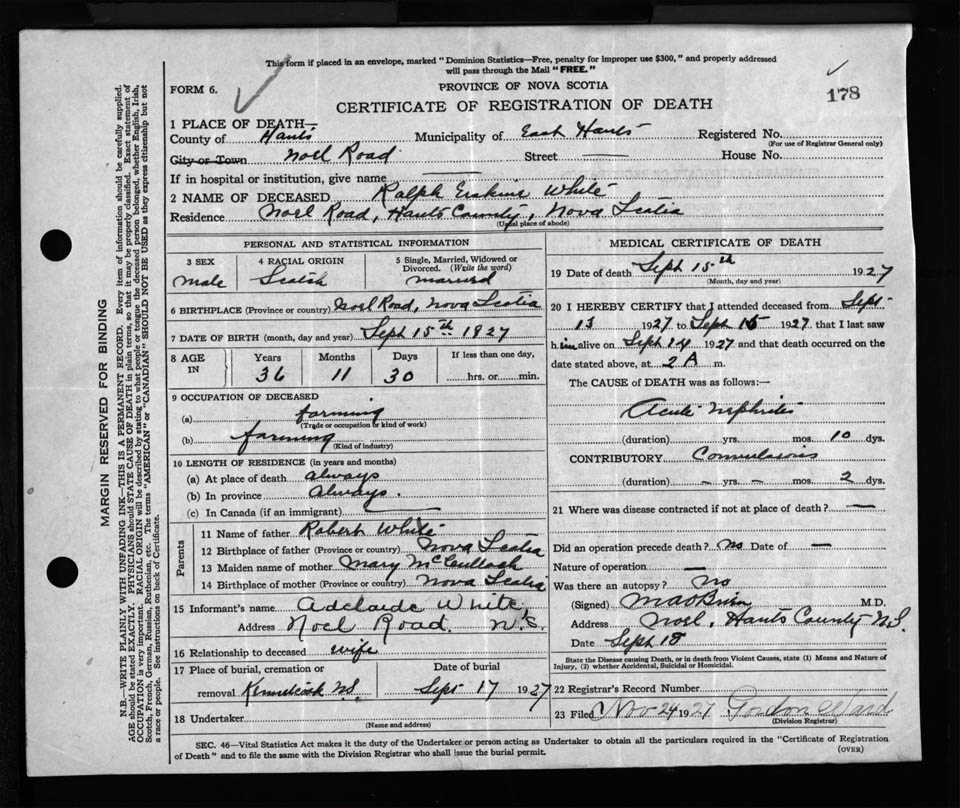 This form if placed in an envelope, marked "Dominion Statistics—Free, penalty for improper use $300," and properly addressed
will pass through the Mail "FREE."
FORM 6.
PROVINCE OF NOVA SCOTIA
CERTIFICATE OF REGISTRATION OF DEATH
178
1 PLACE OF DEATH—
County of Hants Municipality of East Hants Registered No.
(For use of Registrar General only)
City or Town Noel Road Street — House No.
If in hospital or institution, give name —
2 NAME OF DECEASED Ralph Erskine White
Residence Noel Road, Hants County, Nova Scotia
(Usual place of abode)
PERSONAL AND STATISTICAL INFORMATION
3 SEX 4 RACIAL ORIGIN 5 Single, Married, Widowed or Divorced. (Write the word)
male Scotch married
6 BIRTHPLACE (Province or country) Noel Road, Nova Scotia
7 DATE OF BIRTH (month, day and year) Sept 15th 1827
8 AGE IN Years Months Days If less than one day,
36 11 30 hrs. or min.
9 OCCUPATION OF DECEASED
(a) farming
(Trade or occupation or kind of work)
(b) farming
(Kind of industry)
10 LENGTH OF RESIDENCE (in years and months)
(a) At place of death always
(b) In province always.
(c) In Canada (if an immigrant) —
Parents
11 Name of father Robert White
12 Birthplace of father (Province or country) Nova Scotia
13 Maiden name of mother Mary McCulloch
14 Birthplace of mother (Province or country) Nova Scotia
15 Informant's name Adelaide White,
Address Noel Road. N.S.
16 Relationship to deceased wife
17 Place of burial, cremation or Date of burial
removal Kennetcook NS. Sept 17 1927
18 Undertaker
(Name and address)
MEDICAL CERTIFICATE OF DEATH
19 Date of death Sept 15th 1927
(Month, day and year)
20 I HEREBY CERTIFY that I attended deceased from Sept
13 1927 to Sept 15 1927 that I last saw
h im alive on Sept 14 1927 and that death occurred on the
date stated above, at 2 A m.
The CAUSE of DEATH was as follows:—
Acute nephritis
(duration) yrs. mos. 10 dys.
CONTRIBUTORY Convulsions
(duration) – yrs. – mos. 2 dys.
21 Where was disease contracted if not at place of death? —
Did an operation precede death? no Date of —
Nature of operation —
Was there an autopsy? No
(Signed) M.D.
Address Noel, Hants County N.S.
Date Sept 18
State the Disease causing Death, or in death from Violent Causes, state (1) Means and Nature of
Injury, (2) whether Accidental, Suicidal or Homicidal.
22 Registrar's Record Number
23 Filed Nov 24 1927 Gordon Ward
(Division Registrar)
SEC. 46—Vital Statistics Act makes it the duty of the Undertaker or person acting as Undertaker to obtain all the particulars required in the "Certificate of Registration
of Death" and to file the same with the Division Registrar who shall issue the burial permit. (OVER)
MARGIN RESERVED FOR BINDING
N.B.—WRITE PLAINLY WITH UNFADING INK—THIS IS A PERMANENT RECORD. Every item of information should be carefully supplied.
AGE should be stated EXACTLY. PHYSICIANS should STATE CAUSE OF DEATH in plain terms, so that it may be properly classified. Exact statement of
OCCUPATION is very important. RACIAL ORIGIN will be described by stating to what people or tongue the deceased person belonged, whether English, Irish,
Scotch, French, German, Russian, Ruthenian, etc. The terms "AMERICAN" or "CANADIAN" SHOULD NOT BE USED as they express citizenship but not
a race or people. See instructions on back of Certificate.